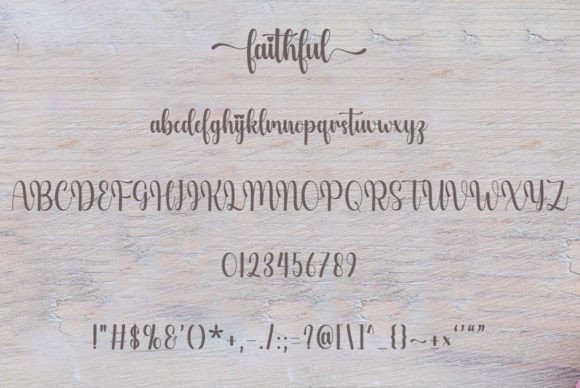 faithful
abcdefghijklmnopqrstuvwxyz
ABCDEFGHIJKLMNOPQRSTUVWXYZ
0123456789
!"#$%&'()*+,-./:;=?@[\]^_{}~+×‘’“”